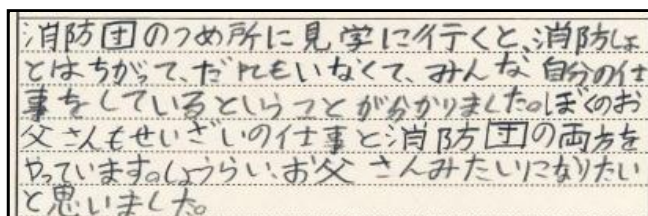 消防団のつめ所に見学に行くと、消防しょ
とはちがって、だれもいなくて、みんな自分の仕
事をしているということが分かりました。ぼくのお
父さんもせいざいの仕事と消防団の両方を
やっています。しょうらい、お父さんみたいになりたい
と思いました。